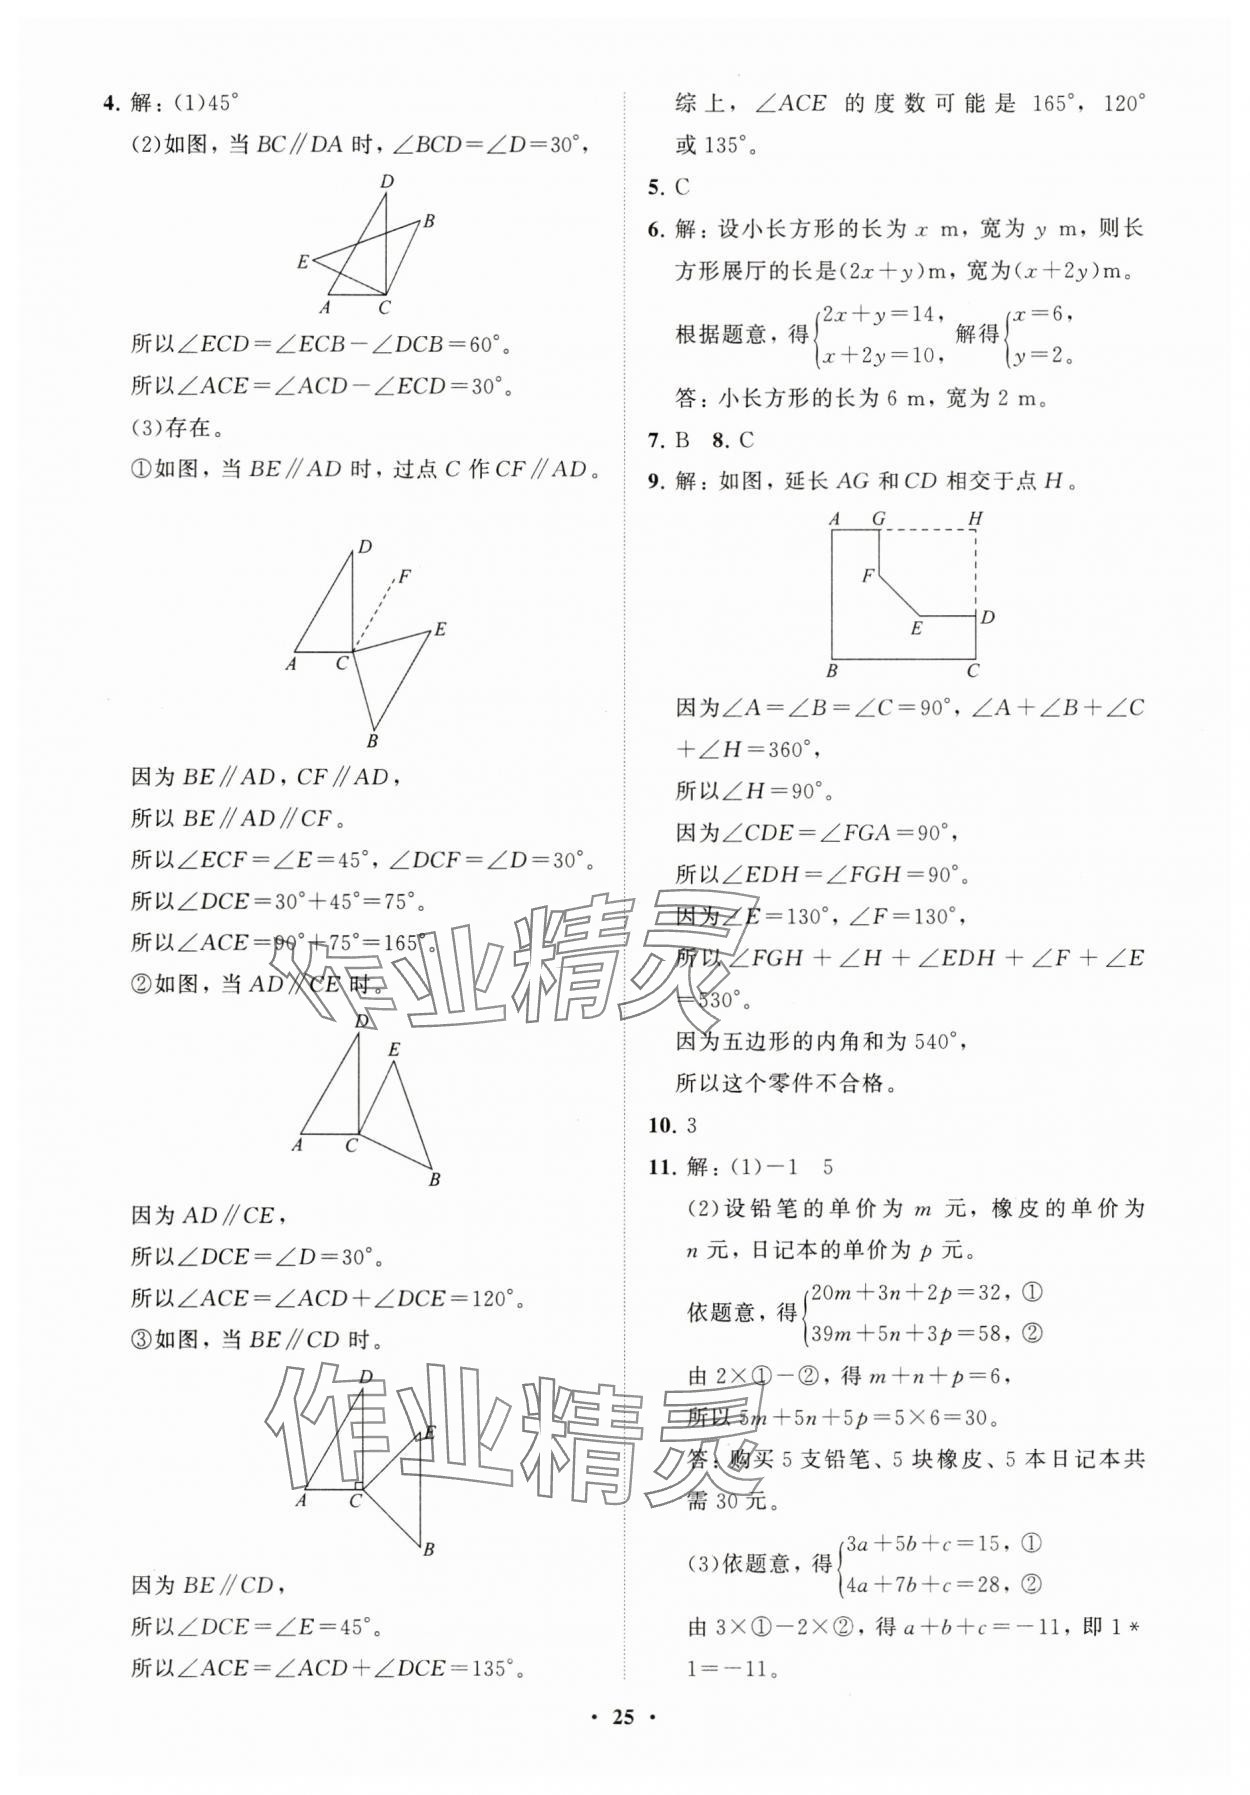 4. 解：(1)45°
(2)如图，当 BC∥DA 时，∠BCD=∠D=30°，
D
B
E
A
C
所以∠ECD=∠ECB－∠DCB=60°。
所以∠ACE=∠ACD－∠ECD=30°。
(3)存在。
①如图，当 BE∥AD 时，过点 C 作 CF∥AD。
D
F
E
A
C
B
因为 BE∥AD，CF∥AD，
所以 BE∥AD∥CF。
所以∠ECF=∠E=45°，∠DCF=∠D=30°。
所以∠DCE=30°+45°=75°。
所以∠ACE=90°+75°=165°。
②如图，当 AD∥CE 时。
D
E
A
C
B
因为 AD∥CE，
所以∠DCE=∠D=30°。
所以∠ACE=∠ACD+∠DCE=120°。
③如图，当 BE∥CD 时。
D
E
A
C
B
因为 BE∥CD，
所以∠DCE=∠E=45°。
所以∠ACE=∠ACD+∠DCE=135°。
综上，∠ACE 的度数可能是 165°，120°
或 135°。
5. C
6. 解：设小长方形的长为 x m，宽为 y m，则长
方形展厅的长是(2x+y)m，宽为(x+2y)m。
根据题意，得{2x+y=14，x+2y=10，解得{x=6，y=2。
答：小长方形的长为 6 m，宽为 2 m。
7. B 8. C
9. 解：如图，延长 AG 和 CD 相交于点 H。
A G H
F
E D
B C
因为∠A=∠B=∠C=90°，∠A+∠B+∠C
+∠H=360°，
所以∠H=90°。
因为∠CDE=∠FGA=90°，
所以∠EDH=∠FGH=90°。
因为∠E=130°，∠F=130°，
所以∠FGH+∠H+∠EDH+∠F+∠E
=530°。
因为五边形的内角和为 540°，
所以这个零件不合格。
10. 3
11. 解：(1)－1 5
(2)设铅笔的单价为 m 元，橡皮的单价为
n 元，日记本的单价为 p 元。
依题意，得{20m+3n+2p=32，①
39m+5n+3p=58，②
由 2×①－②，得 m+n+p=6，
所以 5m+5n+5p=5×6=30。
答：购买 5 支铅笔、5 块橡皮、5 本日记本共
需 30 元。
(3)依题意，得{3a+5b+c=15，①
4a+7b+c=28，②
由 3×①－2×②，得 a+b+c=－11，即 1 *
1=－11。
· 25 ·
作业精灵
作业精灵